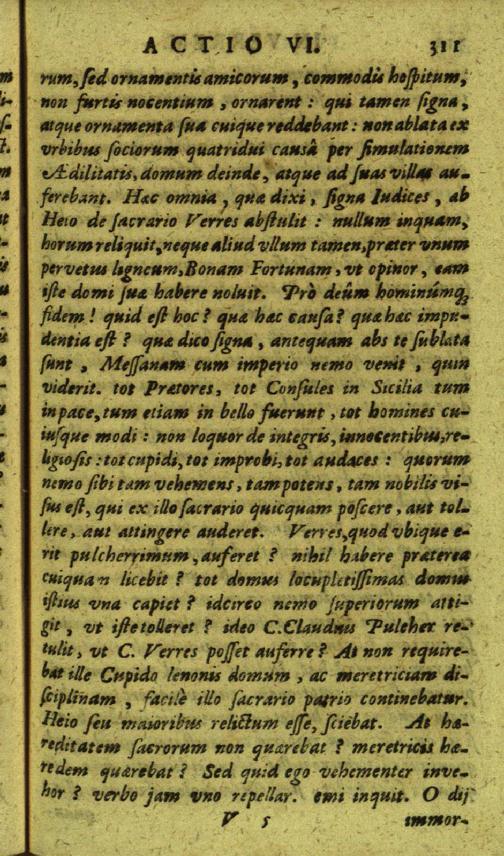 ACTIO VI. 311
rum, sed ornamentis amicorum, commodis hospitum,
non furtis nocentium, ornarent: qui tamen signa,
atque ornamenta sua cuique reddebant: non ablata ex
vrbibus sociorum quatridui causâ per simulationem
Ædilitatis, domum deinde, atque ad suas villas au-
ferebant. Hæc omnia, quæ dixi, signa Iudices, ab
Heio de sacrario Verres abstulit: nullum inquam,
horum reliquit, neque aliud vllum tamen, præter vnum
pervetus ligneum, Bonam Fortunam, vt opinor, eam
iste domi suæ habere noluit. Prò deûm hominúmq;
fidem! quid est hoc? quæ hæc causa? quæ hæc impu-
dentia est? quæ dico signa, antequam abs te sublata
sunt, Messanam cum imperio nemo venit, quin
viderit. tot Prætores, tot Consules in Sicilia tum
in pace, tum etiam in bello fuerunt, tot homines cu-
iusque modi: non loquor de integris, innocentibus, re-
ligiosis: tot cupidi, tot improbi, tot audaces: quorum
nemo sibi tam vehemens, tam potens, tam nobilis vi-
sus est, qui ex illo sacrario quicquam poscere, aut tol-
lere, aut attingere auderet. Verres, quod vbique e-
rit pulcherrimum, auferet? nihil habere præterea
cuiquam licebit? tot domus locupletissimas domus
istius vna capiet? idcirco nemo superiorum atti-
git, vt iste tolleret? ideo C. Claudius Pulcher re-
tulit, vt C. Verres posset auferre? At non require-
bat ille Cupido lenonis domum, ac meretriciam di-
sciplinam, facilè illo sacrario patrio continebatur.
Heio seu maioribus relictum esse, sciebat. At hæ-
reditatem sacrorum non quærebat? meretricis hæ-
redem quærebat? Sed quid ego vehementer inve-
hor? verbo jam vno repellar. emi inquit. O dij
V 5 immor-